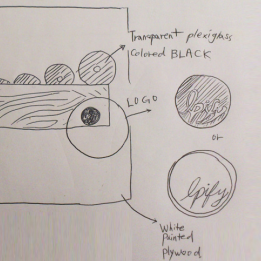 Transparent plexiglass
Colored BLACK
LOGO
or
White
Painted
plywood